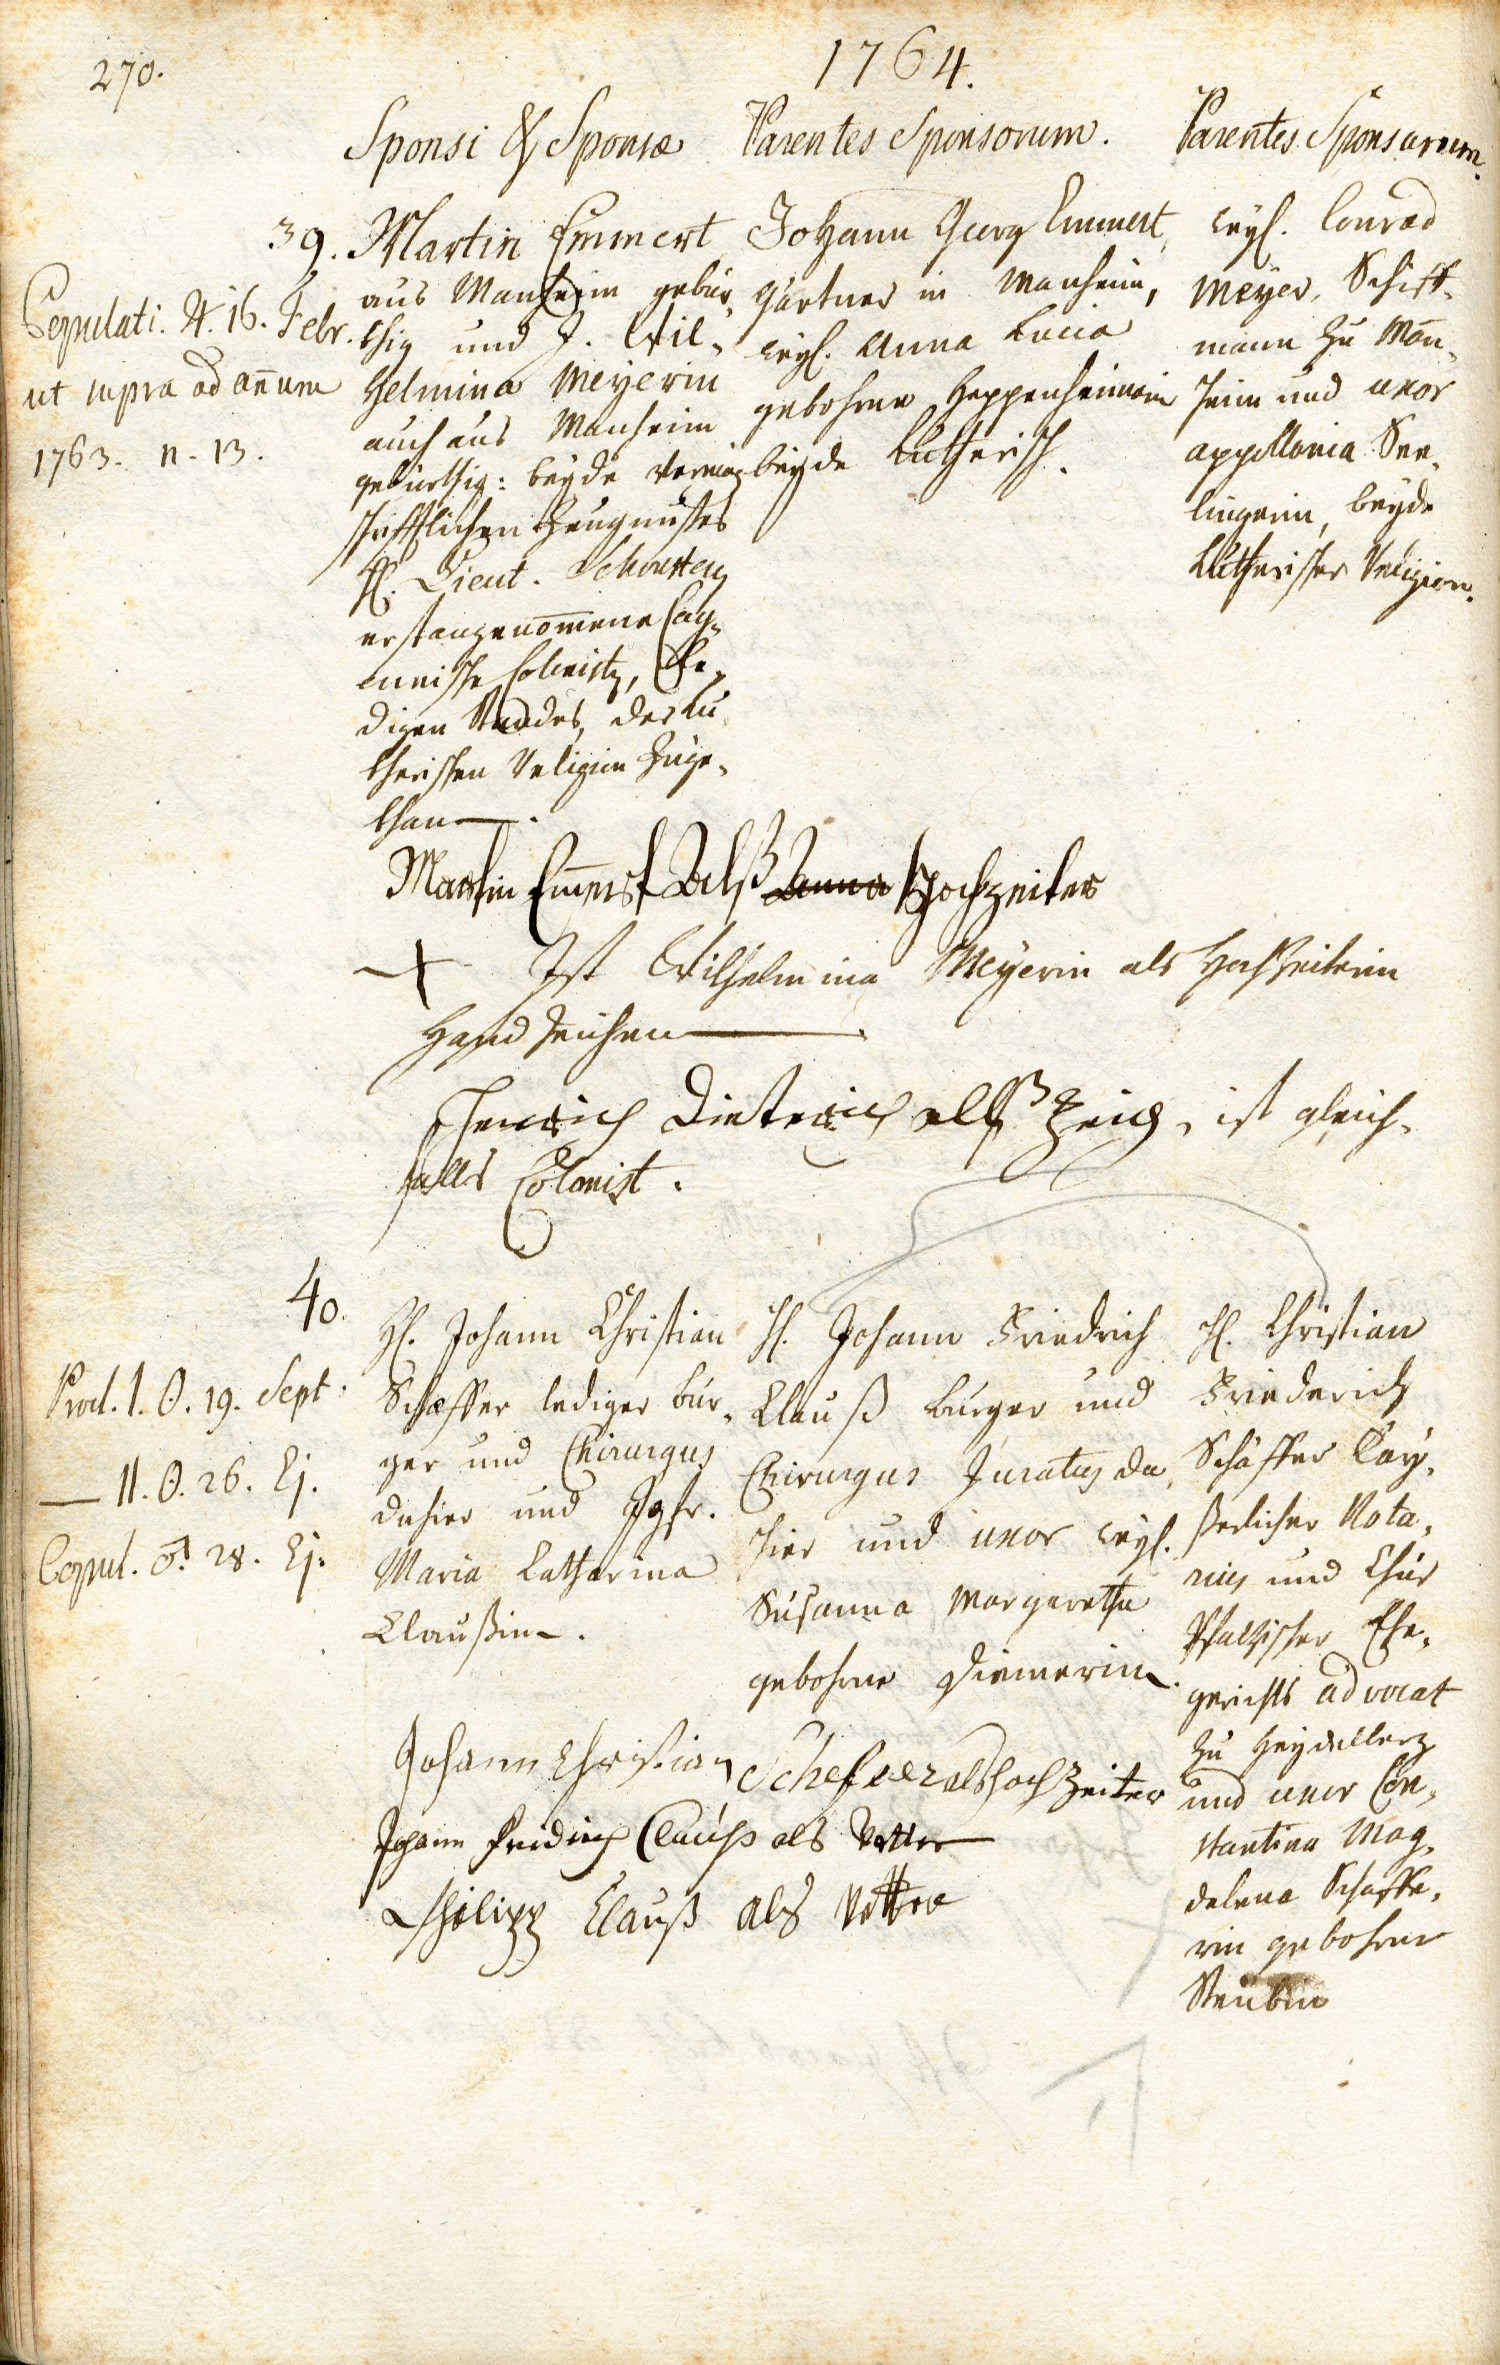 270.
1764.
Sponsi & Sponsæ
Parentes Sponsorum.
Parentes Sponsarum.
39.
Copulati. 4. 16. Febr.
ut supra ad añum
1763. n. 13.
Martin Emmert
aus Manheim gebür,
thig und J. Wil,
helmina Meyerin
auch aus Manheim
gebürthig: beyde vermög
schrifftlichen Zeugnußes
H. Lieut. Schouttey
erstangenom̄ene Cay,
ennische Colonisten, Le,
digen Standes, der Lu,
therischen Religion Zuge,
than.
Johann Georg Emmert,
Gärtner in Manheim,
weyl. Anna Lucia
gebohrne Heppenheimerin
beyde Lutherisch.
weyl. Conrad
Meyer, Schiff,
mann zu Man,
heim und uxor
appollonia See,
lingerin, beyde
Lutherischer Religion.
Martin Em̄ert Alß Hochzeiter
+ Ist Wilhelmina Meyerin als Hochzeiterin
Handzeichen.
Henrich Dieterich alß Zeig, ist gleich,
falls Colonist.
40.
Procl. 1. ʘ. 19. Sept.
— 11. ʘ. 26. Ej.
Copul. ♂. 28. Ej.
H. Johann Christian
Schæffer lediger bür,
ger und Chirurgus
dahier und Jgfr.
Maria Catharina
Claußin.
H. Johann Friedrich
Clauß burger und
Chirurgus Juratus da,
hier und uxor weyl.
Susanna Margaretha
gebohrne Diemerin.
H. Christian
Friederich
Schäffer Kay,
ßerlicher Nota,
rius und Chur
Pfalzischer Ehe,
gerichts advocat
zu Heydelberg
und uxor Con,
stantina Mag,
dalena Schæffe,
rin gebohrne
Steubin
Johann Christian Scheffer als hoch Zeiter
Johann Fridrich Clauß als Vatter
Philipp Clauß als Vetter